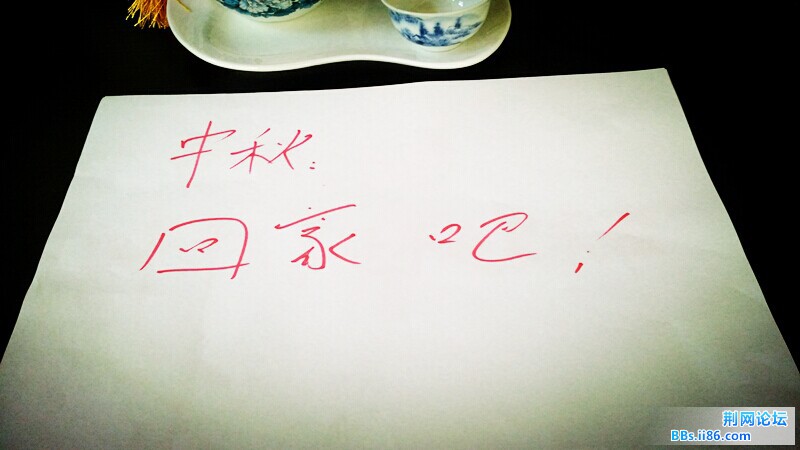 中秋:
回家吧!
荆网论坛
BBs.ii86.com